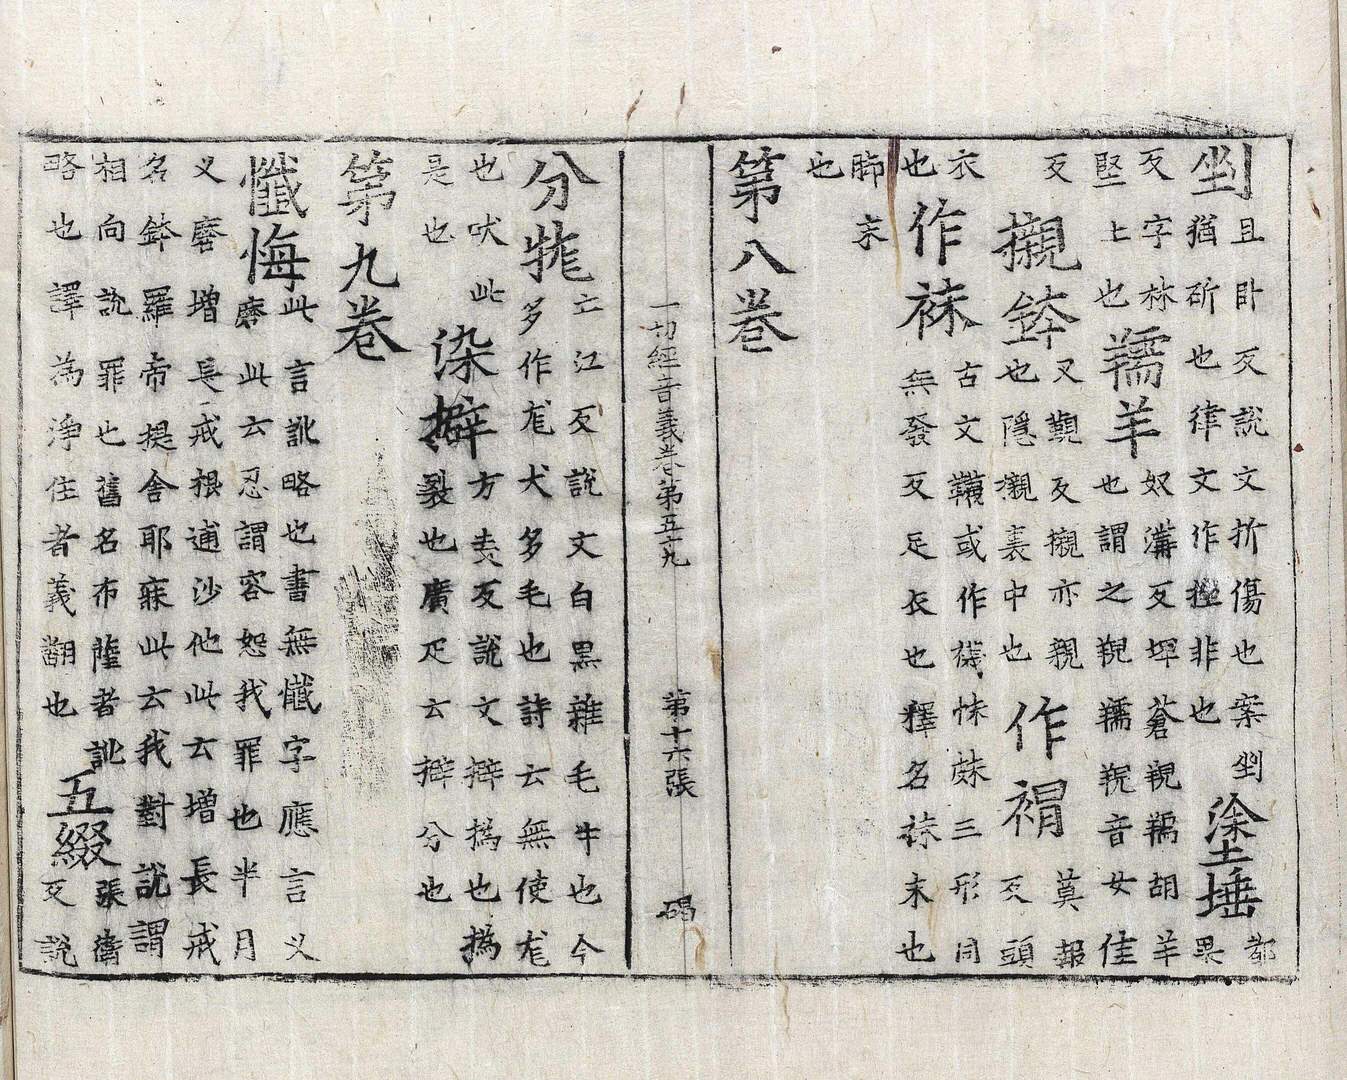 剉且卧反說文折傷也案剉
猶斫也律文作挫非也塗埵都
果
反字林
堅土也羺羊奴溝反埤蒼羺胡羊
也謂之羺音女佳
反襯鉢又覲反櫬亦親
也隱櫬裏中也作莫報
反頭
衣
也作袜古文韤或作襪怽三形同
無發反足衣也釋名袜末也
脚末
也
第八卷
一切經音義卷第五十九 第十六張 碣
分牻亡江反說文白黑雜毛牛也今
多作尨犬多毛也詩云無使尨
也吠此
是也染擗方赤反說文擗撝也撝
裂也廣疋云擗分也
第九卷
懺悔此言訛略也書無懺字應言乂
磨此云忍謂容恕我罪也半月
乂磨增長戒根逋沙他此云增長戒
名鉢羅帝提舍耶寐此云我對說謂
相向說罪也舊名布薩者訛
略也譯為淨住者義翻也五綴張衛
反說